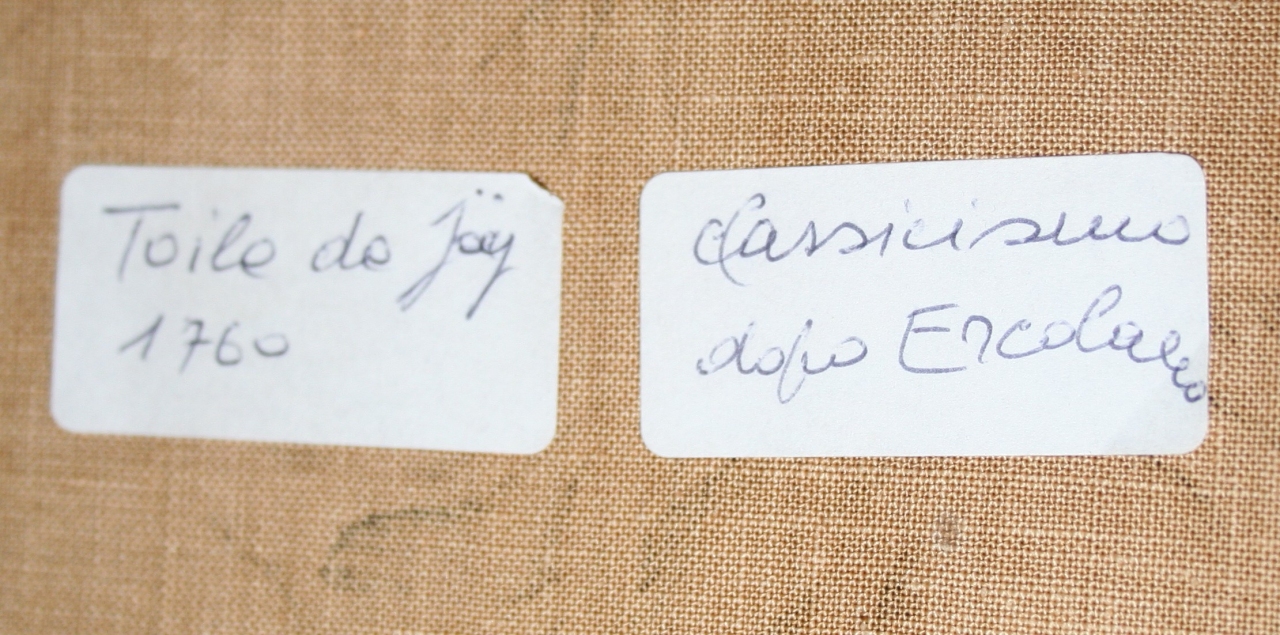 Toile de Joÿ
1760
Classicismo
dopo Ercolano